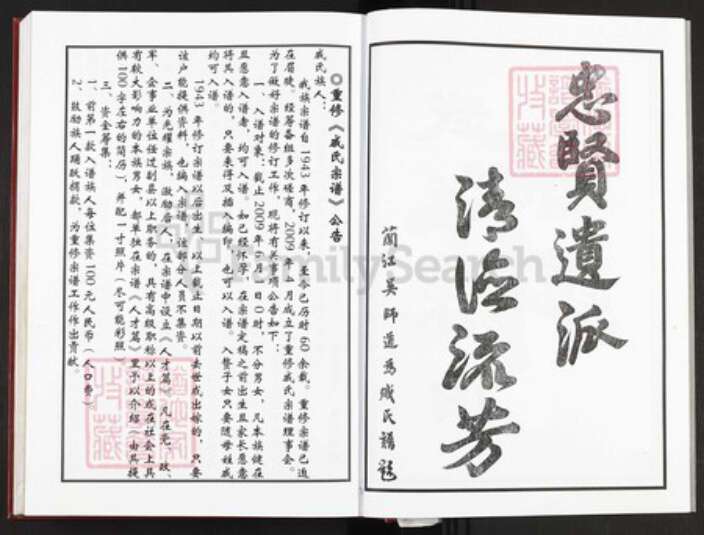 忠賢遺派
清
流芳
蘭江吴師道為戚氏譜題
◎重修《戚氏宗谱》公告
戚氏族人：
我族宗谱自1943年修订以来，至今已历时60余载。重修宗谱已迫
在眉睫。经筹备组多次磋商，2009年4月成立了重修戚氏宗谱理事会。
为了做好宗谱的修订工作，现将有关事项公告如下：
一、入谱对象：截止2009年6月1日0时，不分男女，凡本族健在
且愿意入谱者，均可入谱。如已经怀孕，在宗谱定稿之前出生且家长愿意
将其入谱的，只要来得及插入编印，也可以入谱。入赘子女只要随母姓戚
均可入谱。
1943年修订宗谱以后出生，以上截止日期以前去世或出嫁的，只要
该户能提供资料，也编入宗谱，该部分人员不集资。
二、为光耀宗族，激励后人，在宗谱中设立《人才篇》。凡在党、政、
军、企事业单位任过副县以上职务的，具有高级职称以上的或在社会上具
有较大影响力的本族男女，都单独在宗谱《人才篇》里予以介绍（由其提
供100字左右的简历），并配一寸照片（尽可能彩照）
三、资金筹集：
1、前第一款入谱族人每位集资100元人民币（人口费）
2、鼓励族人踊跃捐款，为重修宗谱工作作出贡献。
FamilySearch